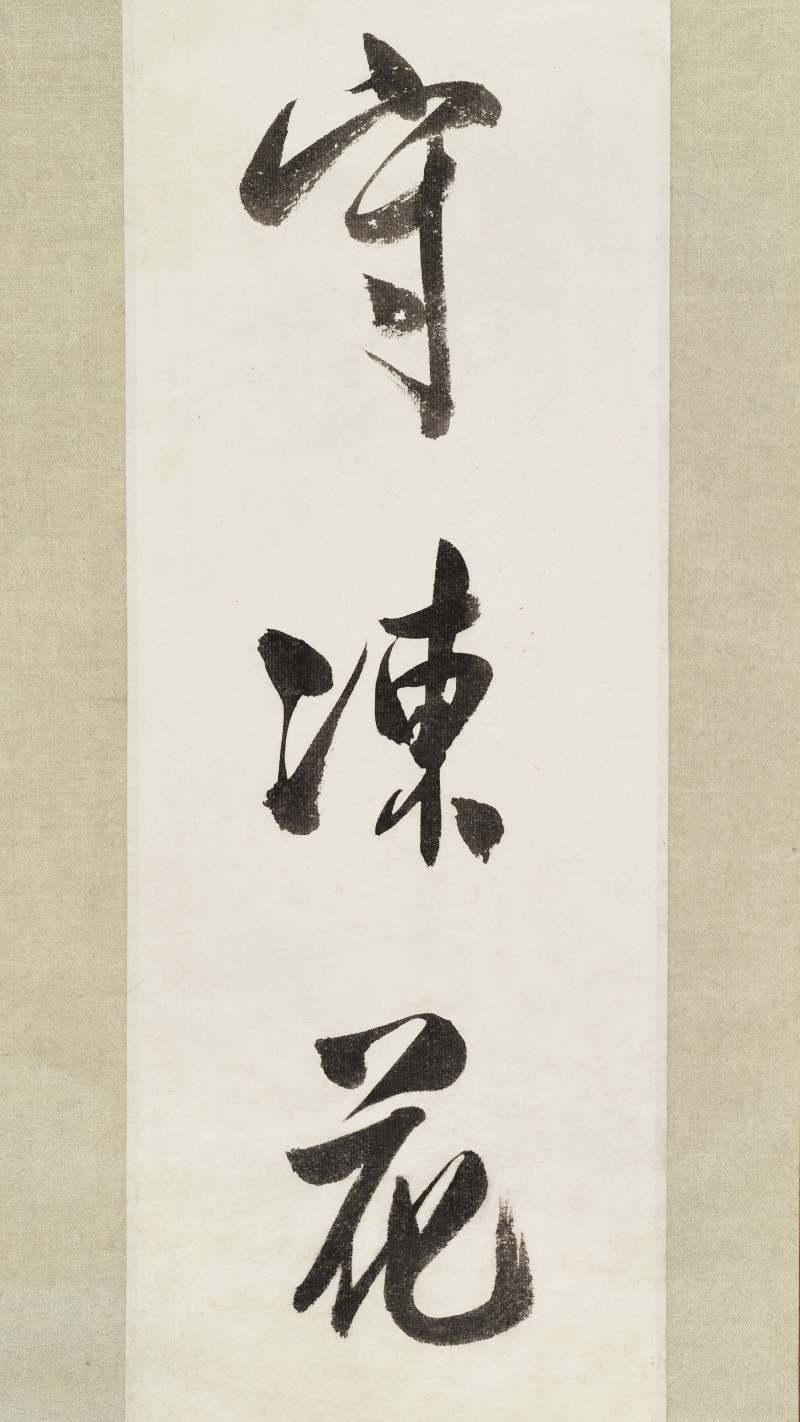 守凍花